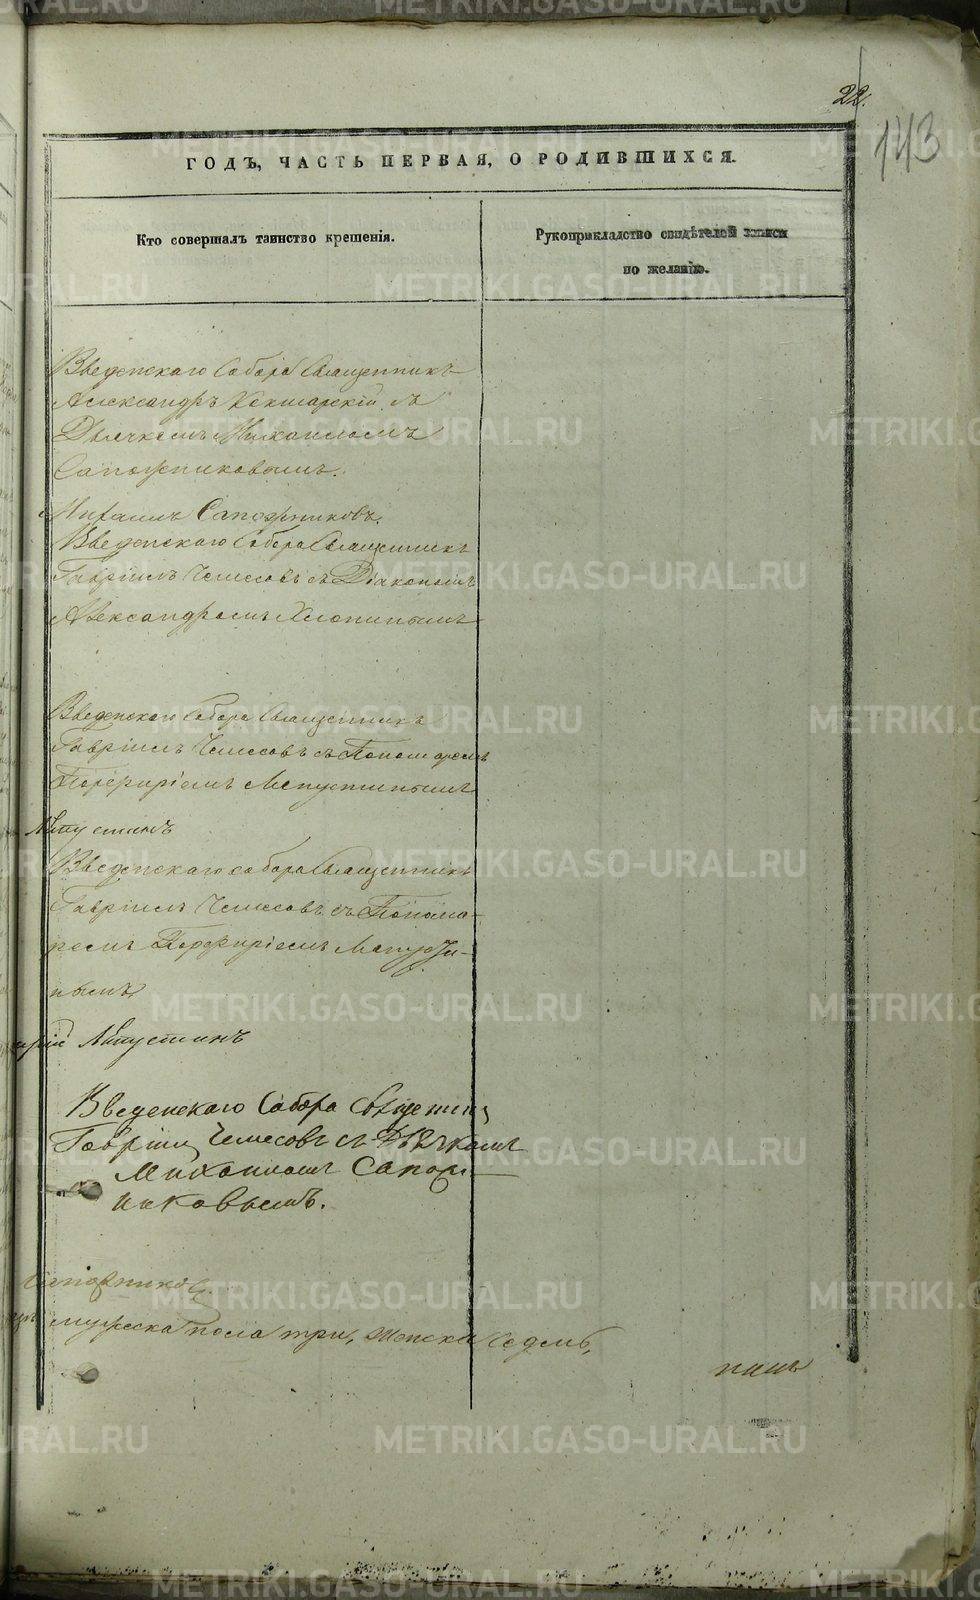 22.
143
ГОДЪ, ЧАСТЬ ПЕРВАЯ, О РОДИВШИХСЯ.
Кто совершалъ таинство крещенія.
Рукоприкладство свидѣтелей записи
по желанію.
Введенскаго Собора Священникъ
Александръ Кокшарскій съ
Дьячкомъ Михаиломъ
Сапожниковымъ.
Михаилъ Сапожниковъ.
Введенскаго Собора Священникъ
Гавріилъ Чемесовъ съ Діакономъ
Александромъ Хлопинымъ
Введенскаго Собора Священникъ
Гавріилъ Чемесовъ съ Пономаремъ
Порфиріемъ Лепустинымъ
Введенскаго собора Священникъ
Гавріилъ Чемесовъ съ Понома-
ремъ Порфиріемъ
нымъ
Введенскаго Собора
Гавріилъ Чемесовъ съ Дьячкомъ
Михаиломъ Сапож-
никовымъ.
Сапожниковъ.
мужска пола три, женска седмь,
METRIKI.GASO-URAL.RU